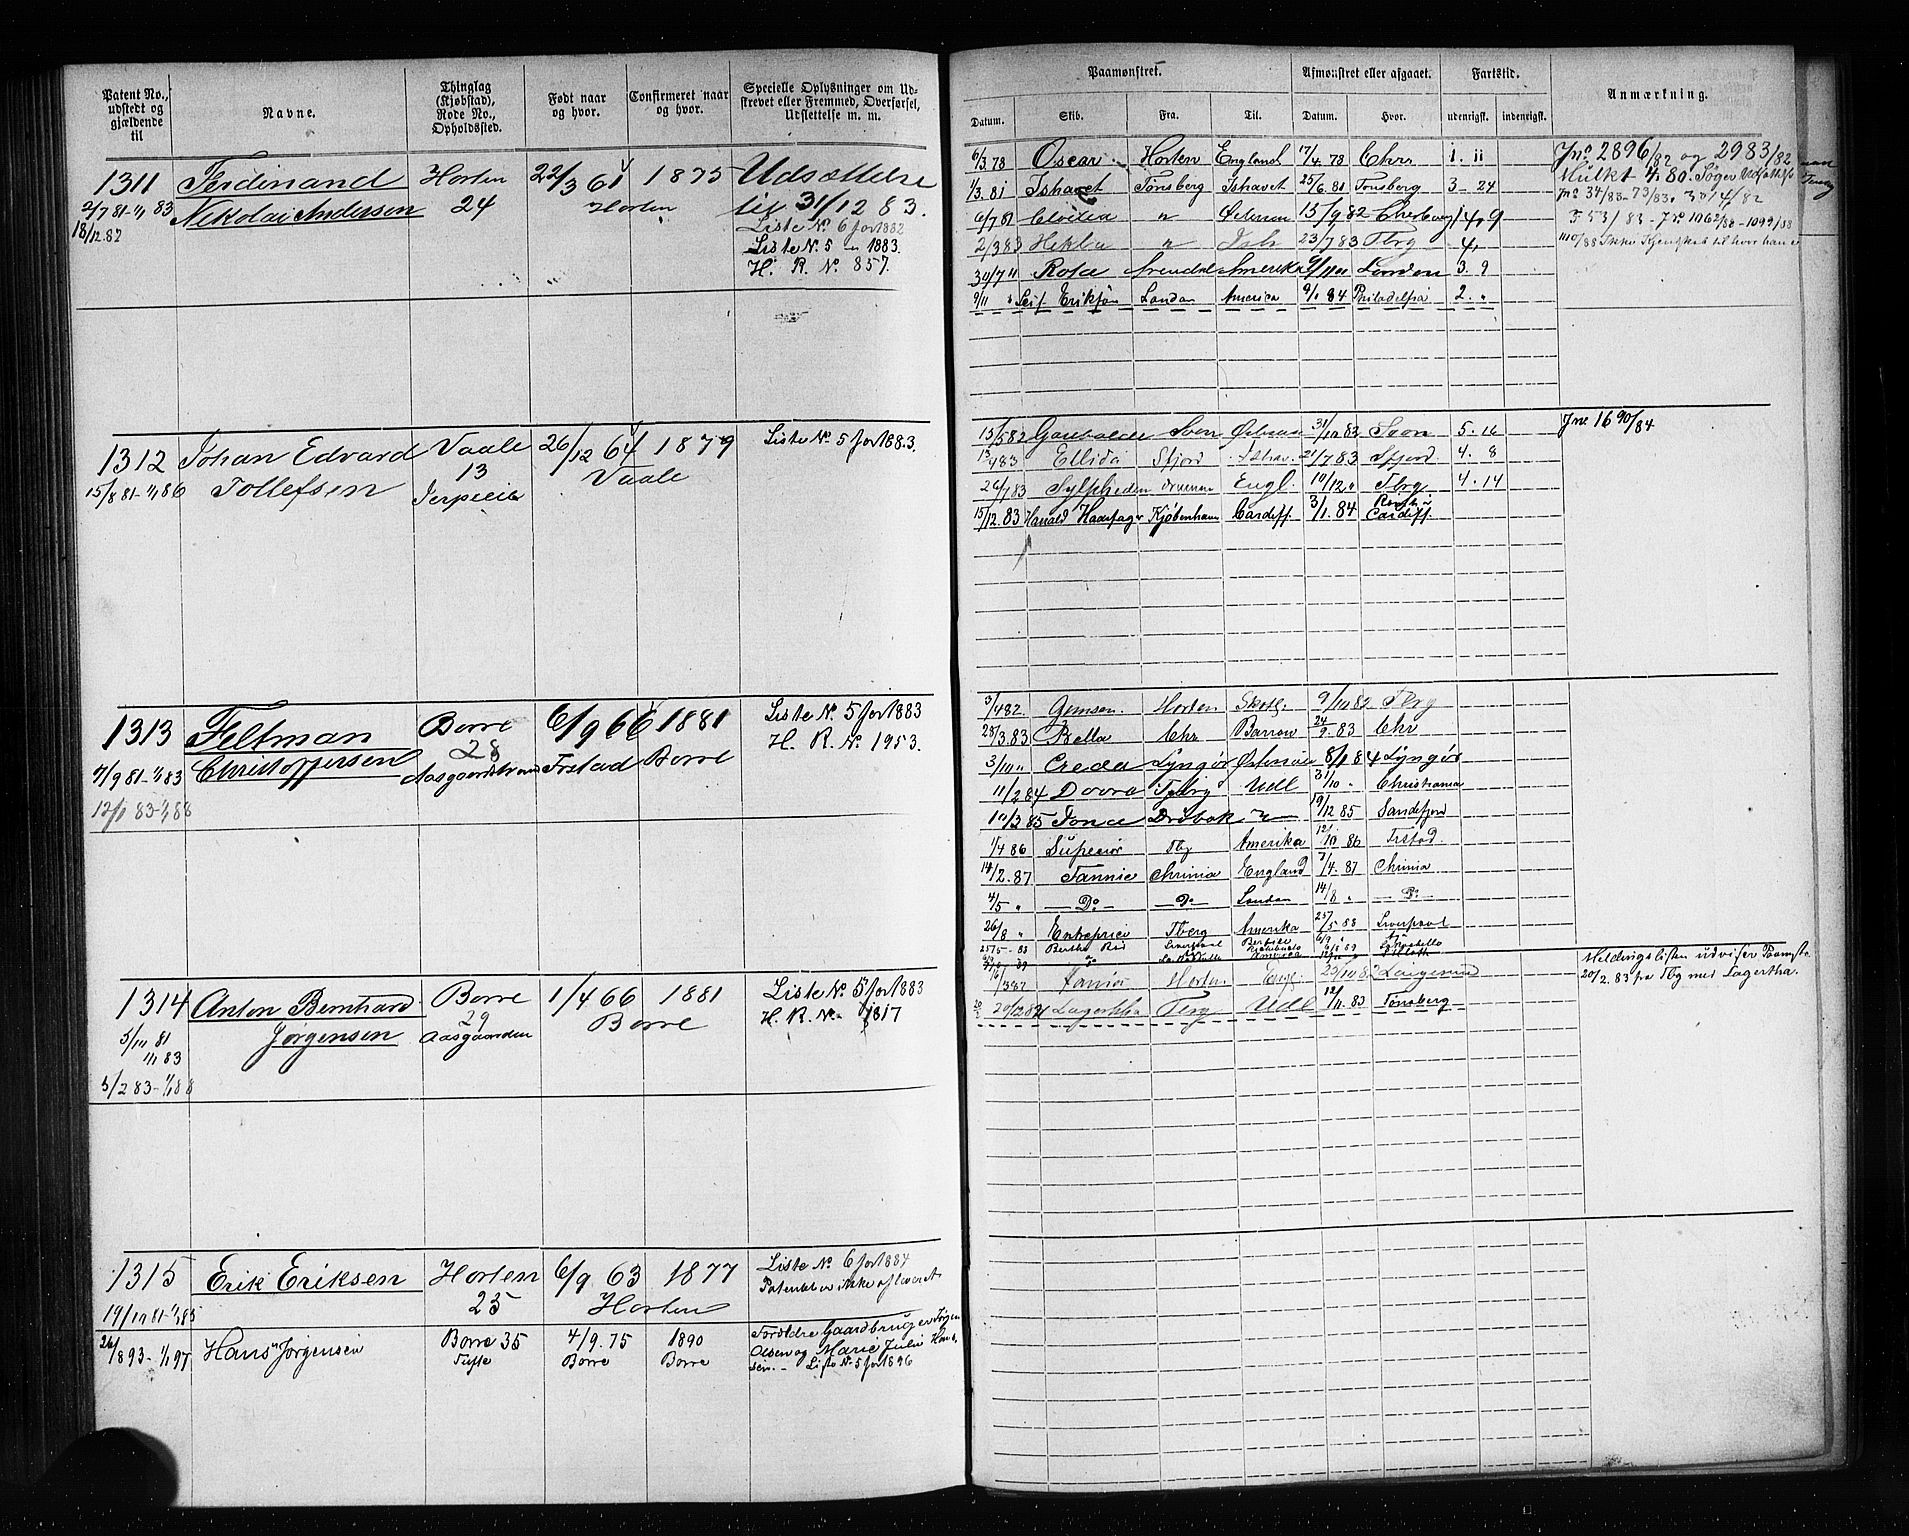 Patent No., udstedt og gjældende til
Navne.
Thinglag (Kjøbstad), Rode No., Opholdssted.
Født naar og hvor.
Confirmeret naar og hvor.
Specielle Oplysninger om Udskrevet eller Fremmed, Overførsel, Udslettelse m. m.
1311 Ferdinand Horten 22/3 61 1875 Udsættelse
2/7 81-1/1 83 Nikolai Andersen 24 Horten til 31/12 83.
18/12 82 Liste No. 6 for 1882
Liste No. 5 " 1883.
H. R. No. 857.
1312 Johan Edvard Vaale 26/12 64 1879 Liste No. 5 for 1883.
15/8 81-1/1 86 Tollefsen 13 Vaale
1313 Feltman Borre 6/9 66 1881 Liste No. 5 for 1883
7/9 81-1/1 83 Christoffersen 28 Aasgaardstrand Frstad Borre H. R. No. 1953.
12/1 83-1/1 88
1314 Anton Bernhard Borre 1/4 66 1881 Liste No. 5 for 1883
5/10 81 Jørgensen 29 Borre H. R. No. 1817
1/1 83 Aasgaarden
5/2 83-1/1 88
1315 Erik Eriksen Horten 6/9 63 1877 Liste No. 6 for 1884
Patentet er ikke afleveret
19/10 81-1/1 85 25 Horten
26/8 93-1/1 97 Hans Jørgensen Borre 35 4/9. 75 1890 Forældre Gaardbruger Jørgen
Borre Borre Olsen og Marie Julie Hansen. - Liste No. 5 for 1896
Paamønstret. Afmønstret eller afgaaet. Fartstid. Anmærkning.
Datum. Skib. Fra. Til. Datum. Hvor. udenrigst. indenrigst.
6/3 78 Oscar Horten England 17/4 78 Chra 1. 11 Jno 2896/82 og 2983/82
1/3 81 Ishavet Tønsberg Ishavet 25/6 81 Tønsberg 3 - 24
6/7 81 " 15/9 82 Cherbourg 14. 9
2/3 83 Hekla " Ish 23/7 83 Tbrg 4.
30/7 " Rosa Arendal Amerika London 3. 9
9/11 " Leif Eriksøn London America 9/1 84 Philadelfia 2. "
15/5 82 Garibaldi Svon 31/10 82 Svon 5. 16 Jno 1690/84
13/4 83 Ellida Sfjord Ishav. 21/7 83 Sfjord 4. 8
26/7 83 Sylpheden Engl. 10/12 " Tbrg 4. 14
15/12. 83 Harald Haarfager Kjøbenhavn Cardiff. 3/1. 84 Cardiff.
3/4 82. Gemsen. Horten Skotl. 9/10 82 Tbrg
28/3. 83 Bella Chr 24/9. 83 Chr
3/10 " Creda Lyngør Østersøen 8/1 84 Lyngør
11/2 84 Dovre Tbrg Udl 31/10 " Christiania
10/3 85 Drøbak " 19/12 85 Sandefjord
1/4 86 Superiør Tbg Amerika 12/10 86 Frstad.
14/2. 87 Fannie Chrinia England 7/4. 87 Chrinia
4/5 " — Do — — Do — London 14/8 " — Do —
26/8 " Enteprise Tberg Amerika 25/5 88 Liverpool
6/3 82 Janiør Horten Engl. 20/10 82 Langesund
29/12 82 Lagertha Tbrg Udl 12/11. 83 Tønsberg
Meldingslisten udviser Paamst.
20/2. 83 fra Tbg med Lagertha.